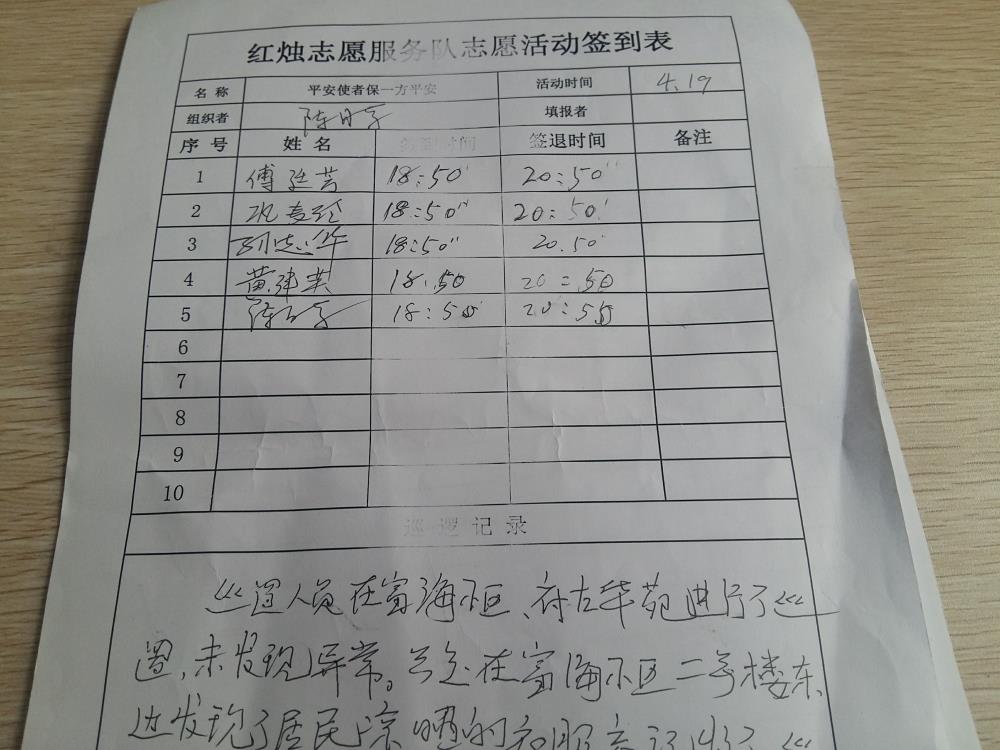 红烛志愿服务队志愿活动签到表
名称 平安使者保一方平安 活动时间 4.19
组织者 填报者
序号 姓名 签到时间 签退时间 备注
1 傅 18:50 20:50
2 18:50 20:50
3 志华 18:50 20.50
4 黄建 18.50 20:50
5 18:50 20:55
6
7
8
9
10
巡逻记录
巡逻人员在富海小区、府左华苑进行了巡
逻,未发现异常。在富海小区二号楼东
边发现了居民晾晒的